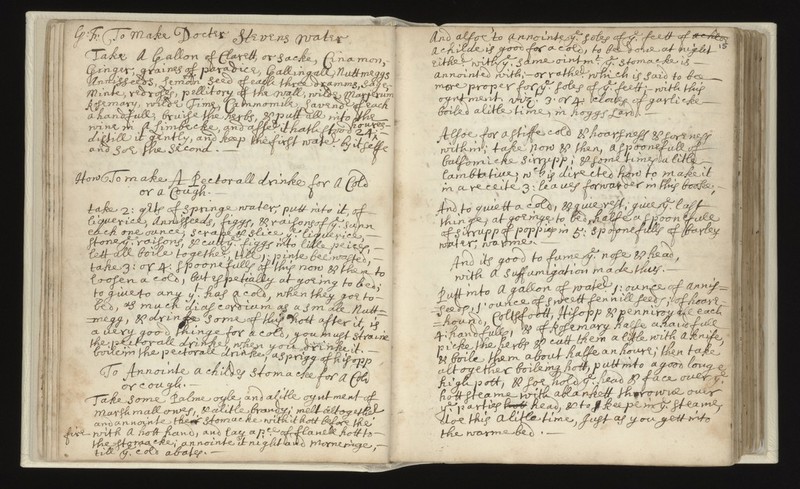 G. F. To Make Docter Stevens water
Take A Gallon of Clarett, or sacke, Cinamon,
Ginger, graines of paradice, Gallingall, Nuttmeggs
Anisseeds, fennill seed of each three dramms, Sage,
Minte, red roses, pellitory of the wall, wilde Margerum
Rosemary, wilde Time, Cammomile, Lavender, of each
a handfull, bruise the herbs, & putt all into the
wine in A Limbecke, and affter it hath stood houres 24;
distill it gently, and keep the first water by it selfe
and soe the second. —
How To make A Pectorall drinke for A Cold
or a Cough. —
take 2: qts of springe water, putt into it, of
liquerice, Annisseeds, figgs, & raisons of ye. sunn
each one ounce, scrape & slice ye. liquerice,
stone ye. raisons, & cutt ye. figgs into litle peices, —
lett all boile together, till 1: pinte bee wasted; —
take 3: or 4: spoonefulls of this now & then to
loosen a cold, but espetially at goeing to bed;
to give to any yt. has a cold, when they goe to —
bed, as much diascordium as a small Nutt=
=megg, & drinke some of this hott after it, is
a very good thinge for a cold, you must straine
the pectorall drinke, when you drinke it. —
boile in the pectorall drinke, a sprigg of hisopp
To Annointe a childs stomacke for A Cold
or cough. —
Take some Palme oyle, and a litle oyntment of
marshmallowes, & a litle brandy; melt altogether
and annointe the stomacke with it hott before the
fire with A hott hand, and lay a pce. of flanell hott to
the stomacke; annointe it night and morneinge, —
till ye. cold abates. —
15
And alsoe to annointe ye. soles of ye. feett of
a childe is good for a cold, to bee done at night
either with ye. same ointmt. ye. stomacke is —
annointed with, — or rather which is said to be —
more proper for ye. soles of ye. feett, with this
oyntment, viz. 3: or 4: cloves of garlicke
boiled a litle time, in hoggs Lard. —
Alsoe for a stiffe cold & hoarsness & soreness
within; take now & then, a spoonefull of
balsomicke sirrupp; & some times a litle
lambtative, wch. is directed how to make it
in a receite 3: leaves forwarder in this booke. —
And to quiett a cold, & give rest, give ye. last
thinge, at goeinge to bed, halfe a spoonefull
of sirrupp of poppies in 5: spoonefulls of Barley
water, warme. —
And its good to fume ye. nose & head,
with a suffumigation made thus. —
Putt into A gallon of water 1: ounce of anni=
=seeds, 1: ounce of sweett fennill seeds, of hoare=
=hound, Coltsfoott, Hisopp & penniroyall each
4: handfulls, & of Rosemary halfe a handfull
picke the herbs & cutt them a litle with a knife,
& boile them about halfe an houre; then take
altogether boileing hott, putt into a good longe
high pott, & soe hold ye. head & face over ye.
hott steame with a blankett throwne over
ye. parties head, & to keep in ye. steame,
doe this A litle time, Just as you gett into
the warme bed. —